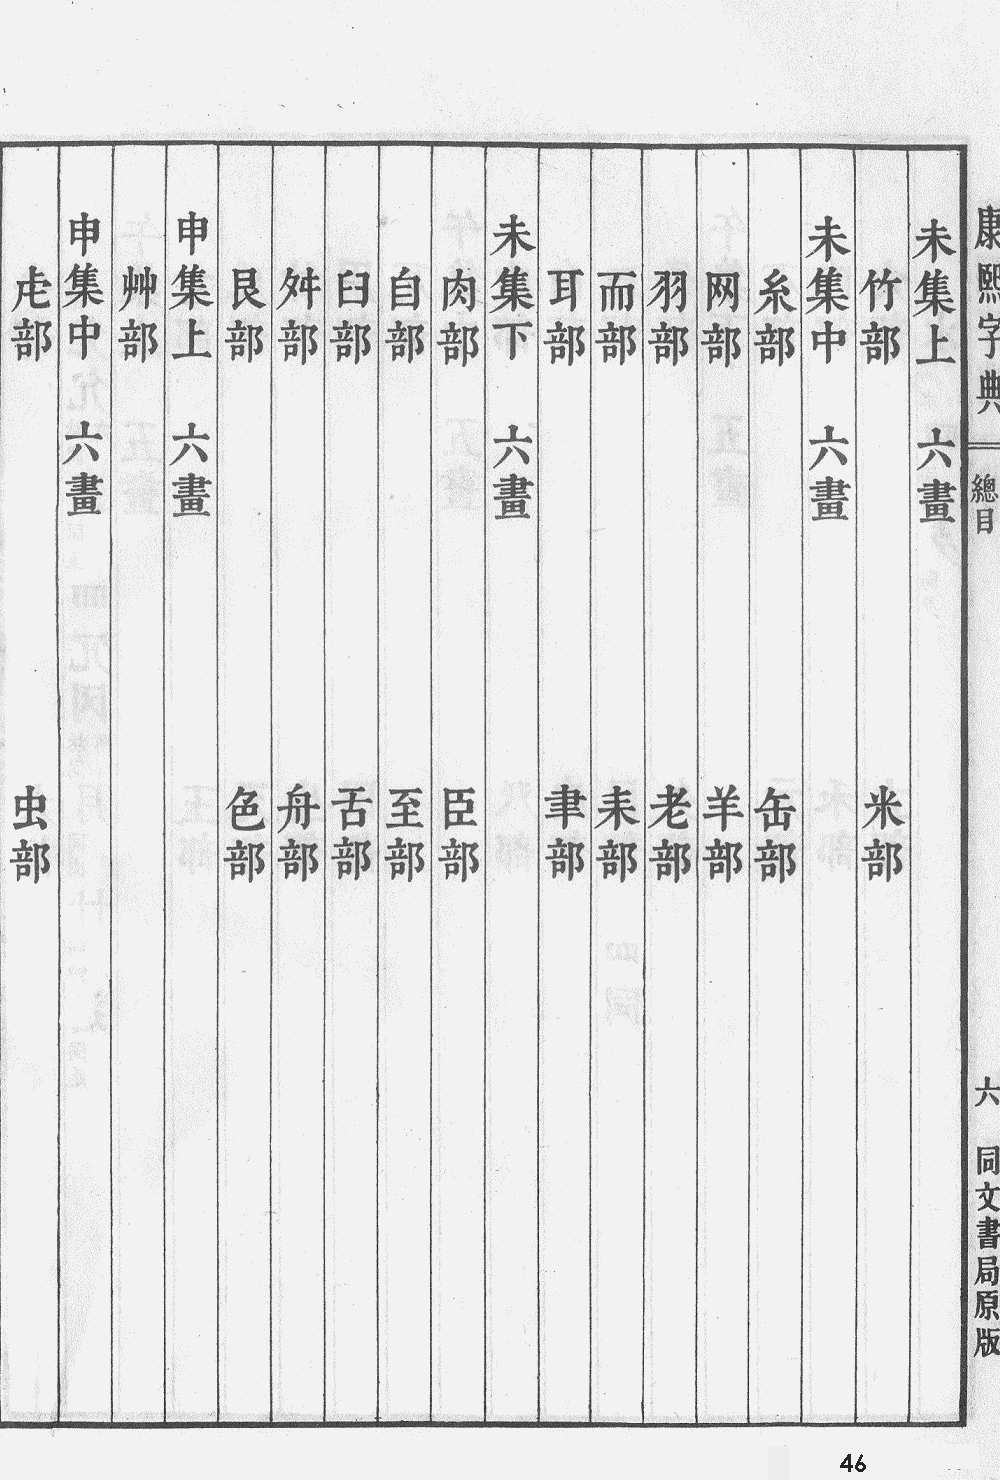 康熙字典 總目 六 同文書局原版
未集上 六畫
竹部 米部
未集中 六畫
糸部 缶部
网部 羊部
羽部 老部
而部 耒部
耳部 聿部
未集下 六畫
肉部 臣部
自部 至部
臼部 舌部
舛部 舟部
艮部 色部
申集上 六畫
艸部
申集中 六畫
虍部 虫部
46